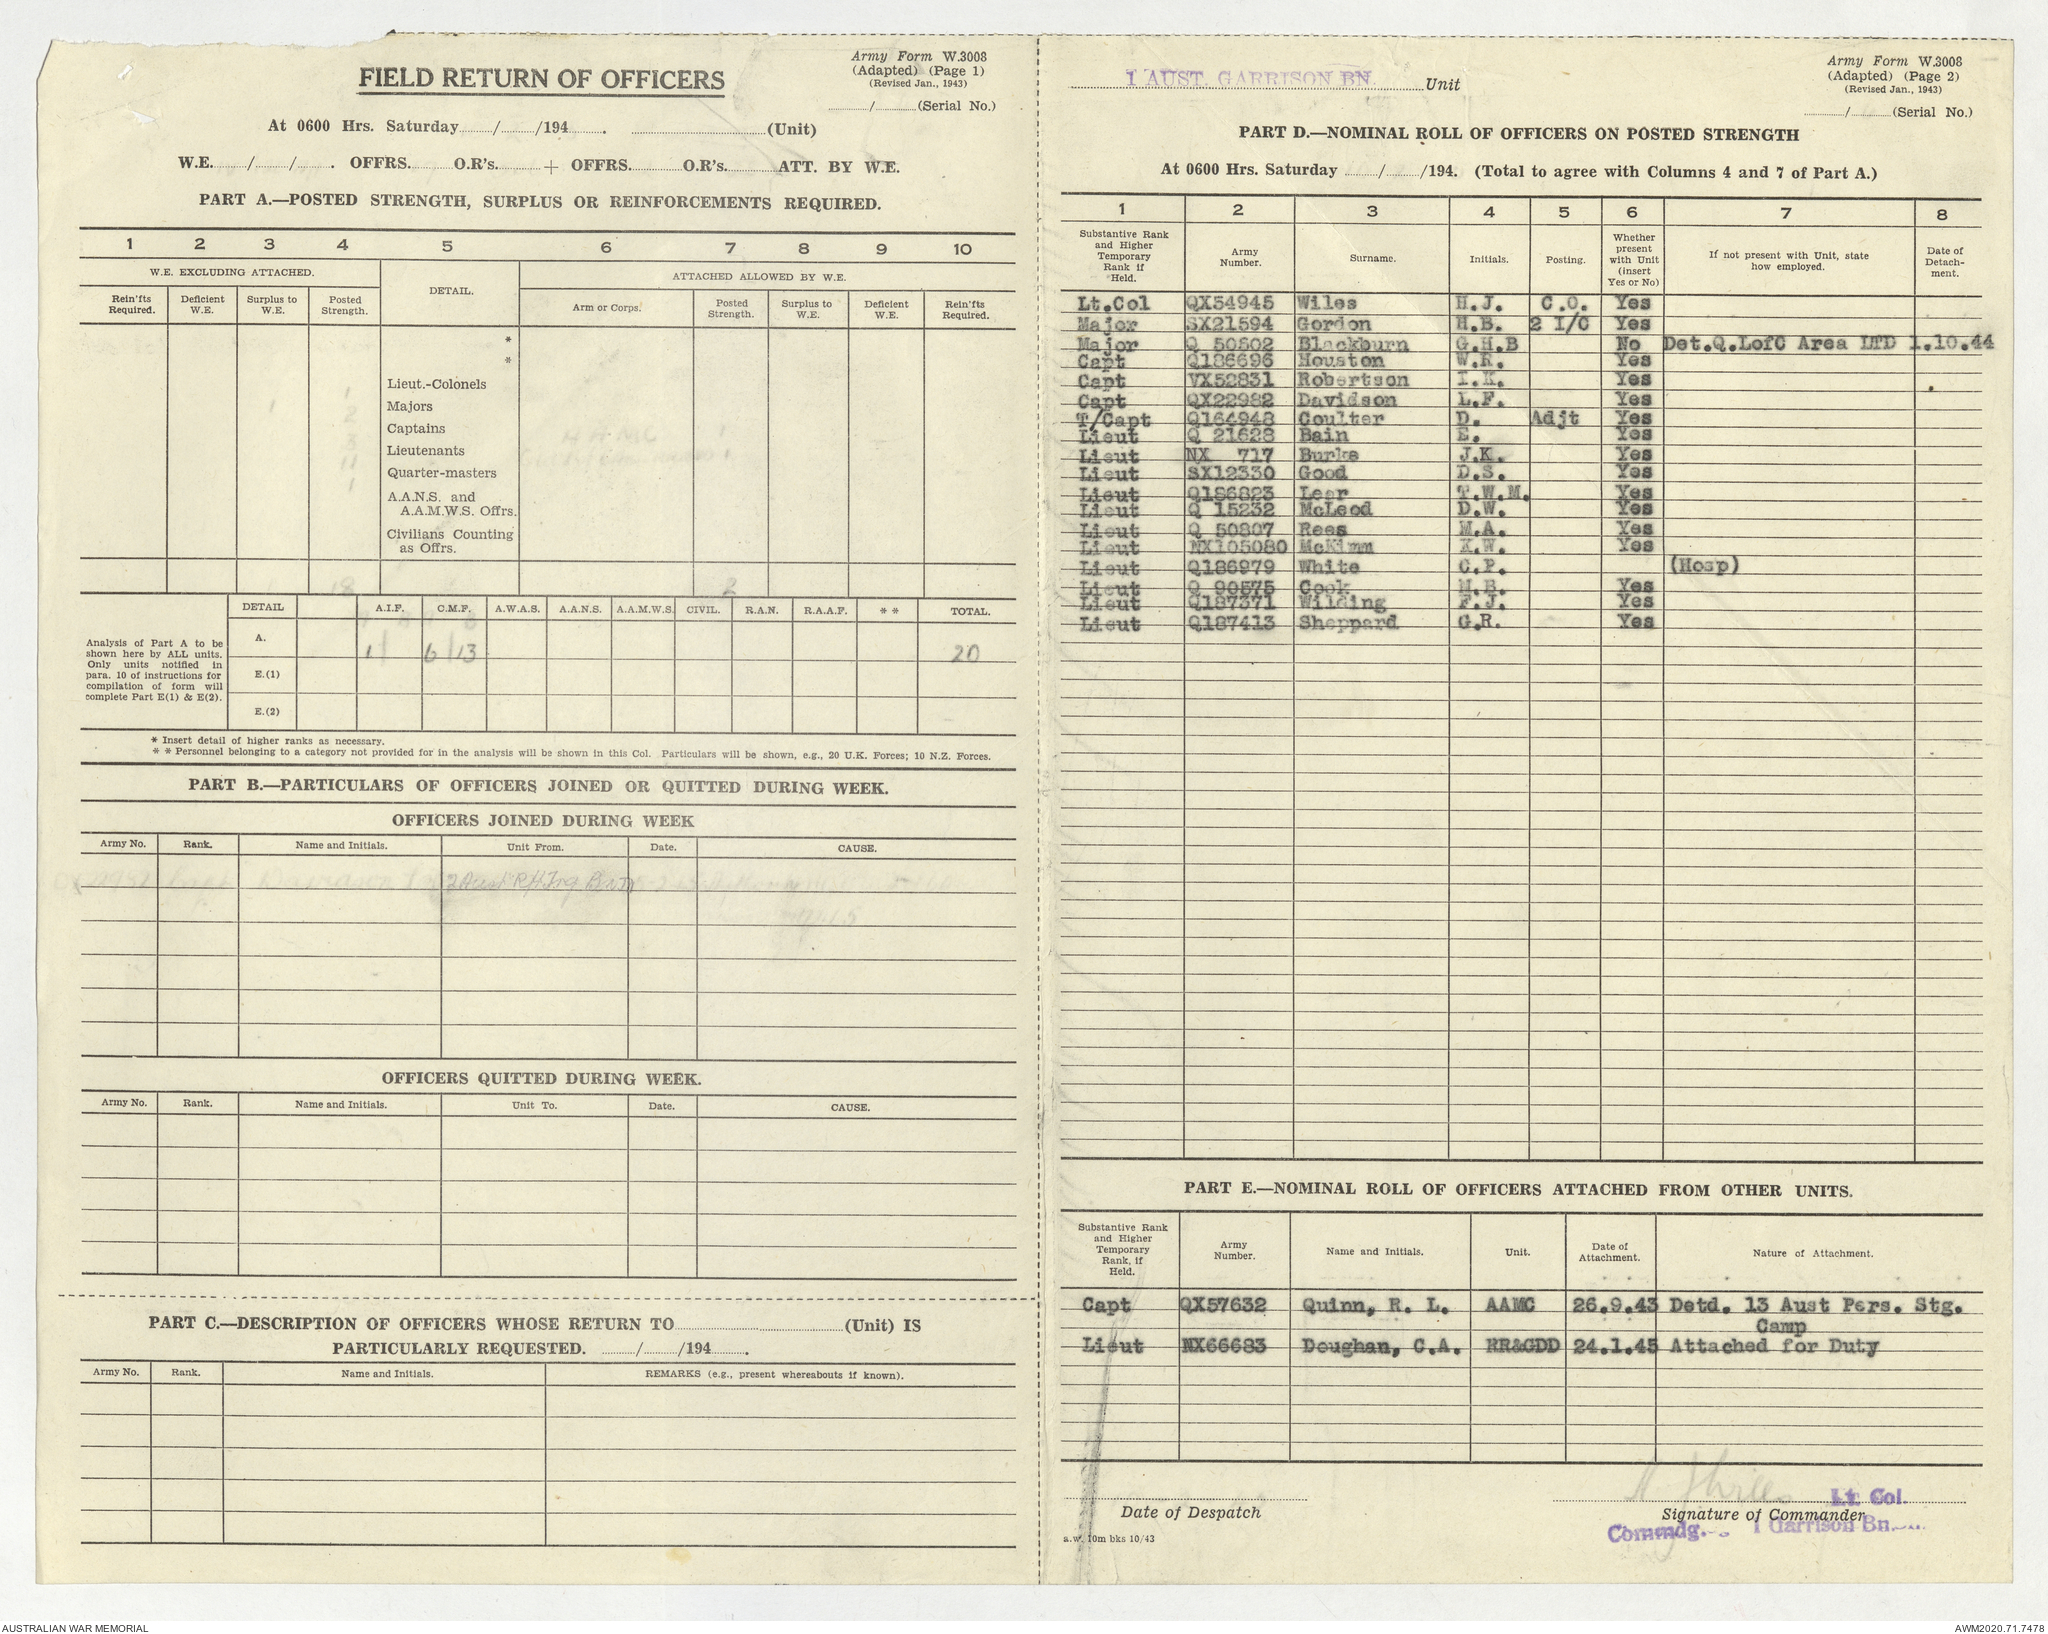 FIELD RETURN OF OFFICERS
Army Form W.3008
(Adapted) (Page 1)
(Revised Jan., 1943)
/ (Serial No.)
At 0600 Hrs. Saturday / /194 . (Unit)
W.E. / / . OFFRS. O.R's. + OFFRS. O.R's. ATT. BY W.E.
PART A.—POSTED STRENGTH, SURPLUS OR REINFORCEMENTS REQUIRED.
1 2 3 4 5 6 7 8 9 10
W.E. EXCLUDING ATTACHED. DETAIL. ATTACHED ALLOWED BY W.E.
Rein'fts Required. Deficient W.E. Surplus to W.E. Posted Strength. Arm or Corps. Posted Strength. Surplus to W.E. Deficient W.E. Rein'fts Required.
*
*
Lieut.-Colonels 1
Majors 1 2
Captains 3 AAMC 1
Lieutenants 11 1
Quarter-masters 1
A.A.N.S. and
A.A.M.W.S. Offrs.
Civilians Counting
as Offrs.
18 2
DETAIL A.I.F. C.M.F. A.W.A.S. A.A.N.S. A.A.M.W.S. CIVIL. R.A.N. R.A.A.F. * * TOTAL.
Analysis of Part A to be
shown here by ALL units.
Only units notified in
para. 10 of instructions for
compilation of form will
complete Part E(1) & E(2).
A. 1 6 13 20
E.(1)
E.(2)
* Insert detail of higher ranks as necessary.
* * Personnel belonging to a category not provided for in the analysis will be shown in this Col. Particulars will be shown, e.g., 20 U.K. Forces; 10 N.Z. Forces.
PART B.—PARTICULARS OF OFFICERS JOINED OR QUITTED DURING WEEK.
OFFICERS JOINED DURING WEEK
Army No. Rank. Name and Initials. Unit From. Date. CAUSE.
Capt Davidson 2 Aust Trg Bn
OFFICERS QUITTED DURING WEEK.
Army No. Rank. Name and Initials. Unit To. Date. CAUSE.
PART C.—DESCRIPTION OF OFFICERS WHOSE RETURN TO (Unit) IS
PARTICULARLY REQUESTED. / /194 .
Army No. Rank. Name and Initials. REMARKS (e.g., present whereabouts if known).
1 AUST. GARRISON BN. Unit
Army Form W.3008
(Adapted) (Page 2)
(Revised Jan., 1943)
/ (Serial No.)
PART D.—NOMINAL ROLL OF OFFICERS ON POSTED STRENGTH
At 0600 Hrs. Saturday / /194. (Total to agree with Columns 4 and 7 of Part A.)
1 2 3 4 5 6 7 8
Substantive Rank and Higher Temporary Rank if Held. Army Number. Surname. Initials. Posting. Whether present with Unit (insert Yes or No) If not present with Unit, state how employed. Date of Detach-ment.
Lt.Col QX54945 Wiles H.J. C.O. Yes
Major SX21594 Gordon H.B. 2 I/C Yes
Major Q 50502 Blackburn G.H.B No Det.Q.LofC Area LTD 1.10.44
Capt Q186696 Houston W.R. Yes
Capt VX52831 Robertson I.K. Yes
Capt QX22982 Davidson L.F. Yes
T/Capt Q164948 Coulter D. Adjt Yes
Lieut Q 21628 Bain E. Yes
Lieut NX 717 Burke J.K. Yes
Lieut SX12330 Good D.S. Yes
Lieut Q186823 Leer T.W.M. Yes
Lieut Q 15232 McLeod D.W. Yes
Lieut Q 50807 Rees M.A. Yes
Lieut NX105080 McKimm K.W. Yes
Lieut Q186979 White C.P. (Hosp)
Lieut Q 90575 Cook M.B. Yes
Lieut Q187371 Wilding F.J. Yes
Lieut Q187413 Sheppard G.R. Yes
PART E.—NOMINAL ROLL OF OFFICERS ATTACHED FROM OTHER UNITS.
Substantive Rank and Higher Temporary Rank, if Held. Army Number. Name and Initials. Unit. Date of Attachment. Nature of Attachment.
Capt QX57632 Quinn, R. L. AAMC 26.9.43 Detd. 13 Aust Pers. Stg.
Camp
Lieut NX66683 Doughan, C.A. RR&GDD 24.1.45 Attached for Duty
Lt. Col.
Date of Despatch Signature of Commander
Commdg. 1 Garrison Bn.
a.w. 10m bks 10/43
AUSTRALIAN WAR MEMORIAL
AWM2020.71.7478